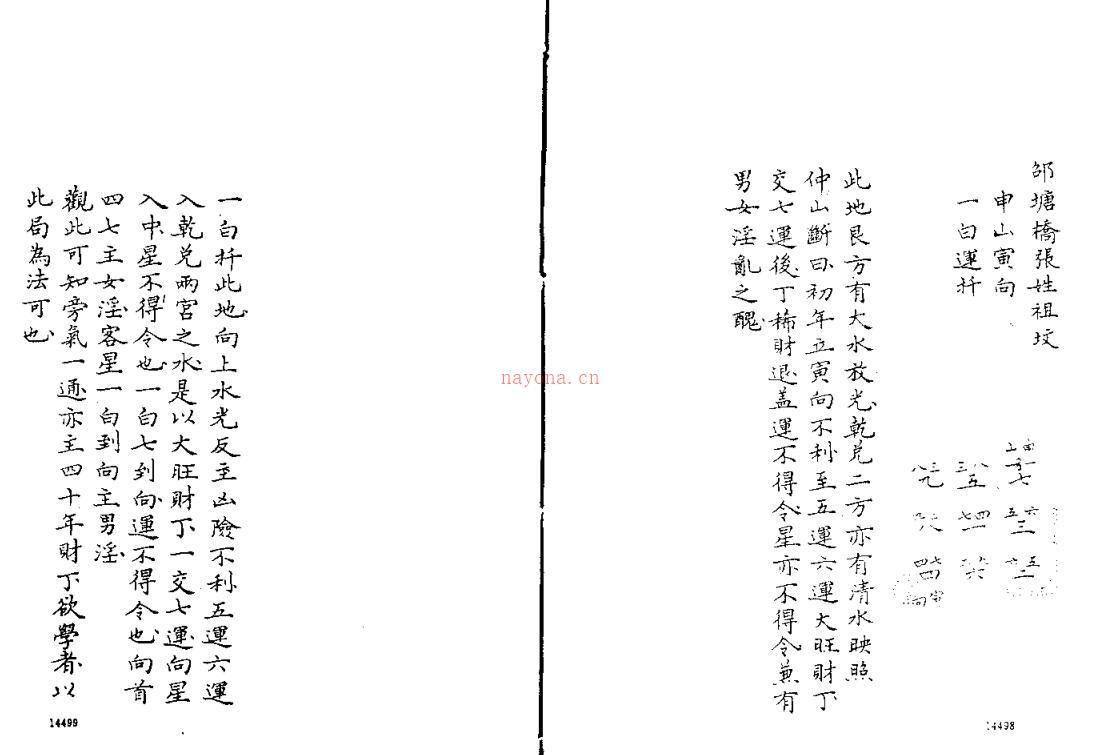 邵塘橋張姓祖坟
申山寅向
一白運扦
此地艮方有大水放光乾兑二方亦有清水映照
仲山斷曰初年立寅向不利至五運六運大旺財丁
交七運後丁稀財退盖運不得令星亦不得令蒹有
男女淫亂之醜
14498
一白扦此地向上水光反主凶險不利五運六運
入乾兑兩宫之水是以大旺財丁一交七運向星
入中星不得令也一白七到向運不得令也向首
四七主女淫客星一白到向主男淫
觀此可知旁氣一通亦主四十年財丁欲學者以
此局為法可也
14499
nayona.cn